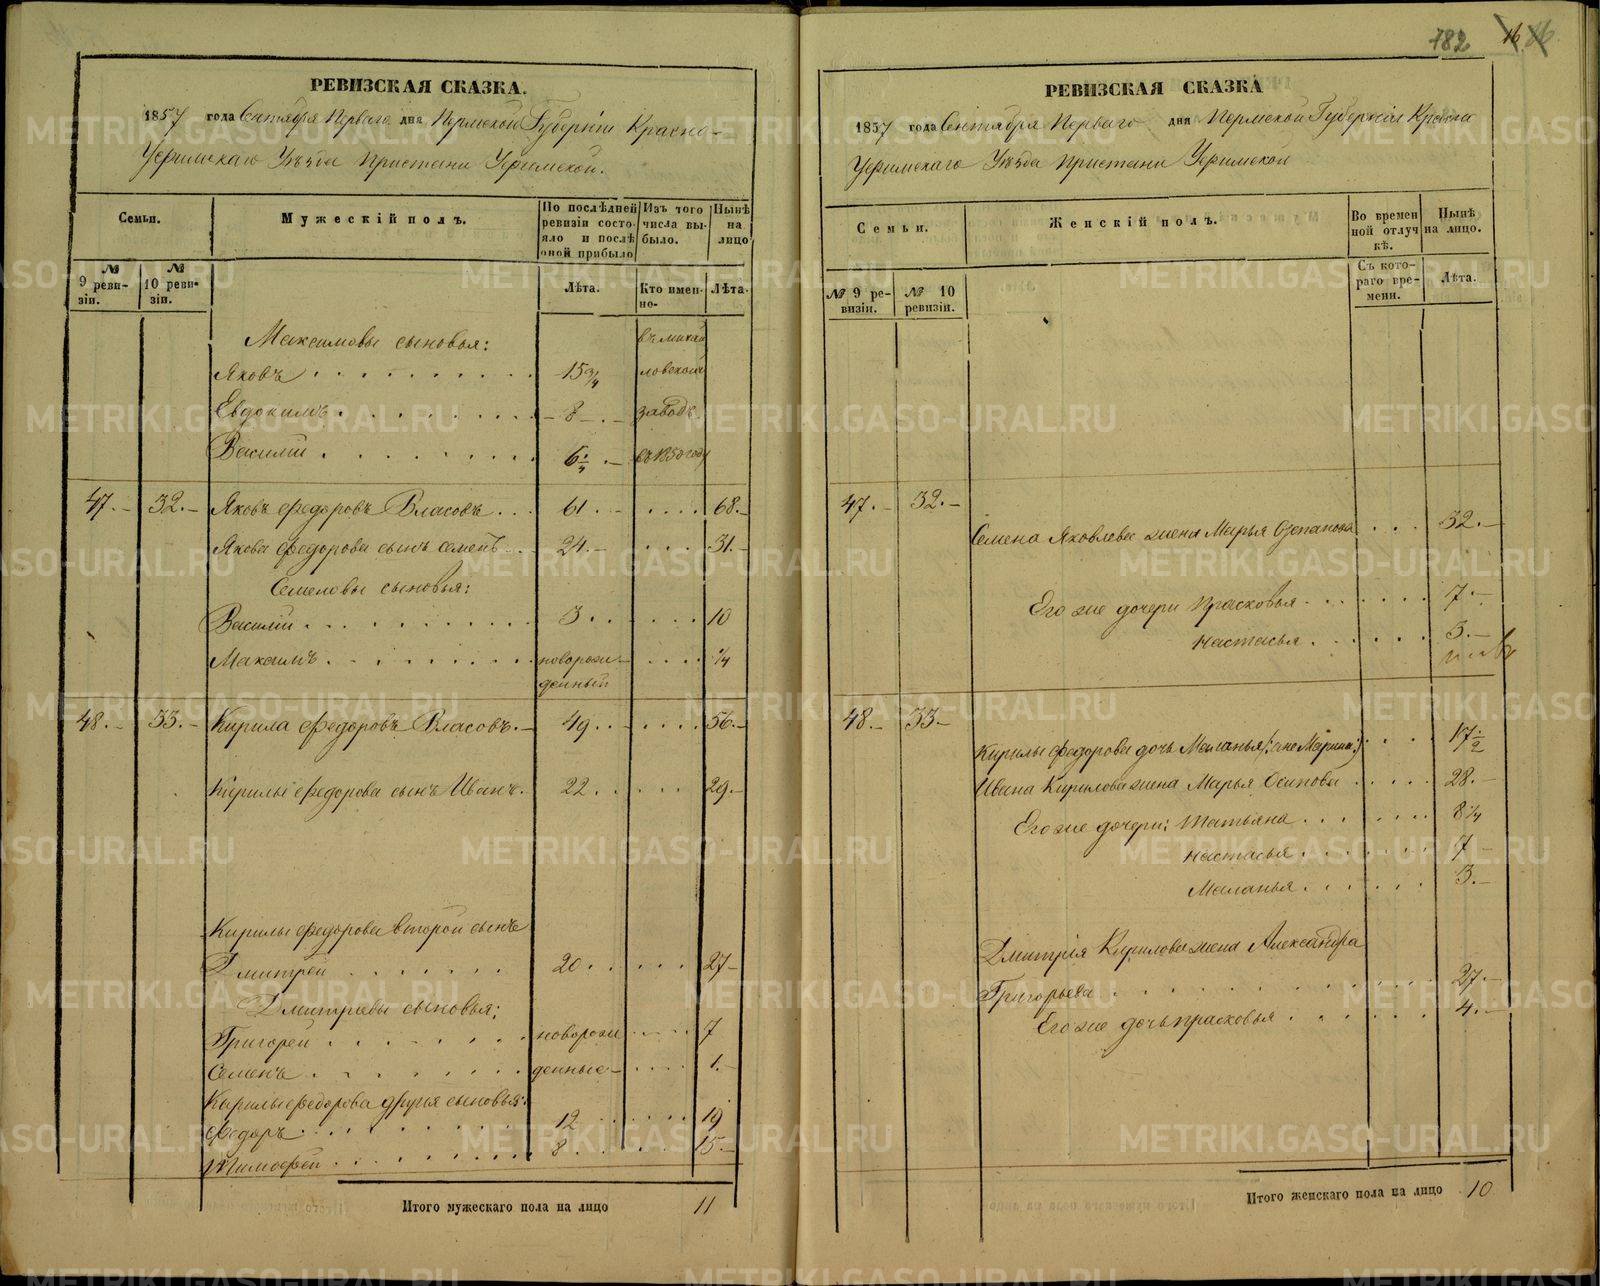 782 16 16
РЕВИЗСКАЯ СКАЗКА.
1857 года Сентября Перваго дня Пермской Губерніи Красно-
Уфимскаго Уѣзда Пристани Уфимской.
Семьи.
Мужескій полъ.
По послѣдней ревизіи состояло и послѣ оной прибыло
Изъ того числа выбыло.
Нынѣ на лицо
№ 9 ревизіи.
№ 10 ревизіи.
Лѣта.
Кто именно.
Лѣта.
Максимовы сыновья: въ Михай
Яковъ 15 3/4 ловской
Евдокимъ 8 заводъ
Василій 6 1/4 въ 1850 году
47. 32. Яковъ Федоровъ Власовъ 61 68.
Якова Федорова сынъ Семенъ 24. 31.
Семеновы сыновья:
Василій 3 10
Максимъ новорож- 1/4
денный
48. 33. Кирила Федоровъ Власовъ. 49 56.
Кирилы Федорова сынъ Иванъ. 22 29.
Кирилы Федорова второй сынъ
Дмитрей 20 27
Дмитріевы сыновья:
Григорей новорож 7
Семенъ денные 1.
Кирилы Федорова другія сыновья:
Федоръ 12 19
Тимофей 8 15.
Итого мужескаго пола на лицо 11
РЕВИЗСКАЯ СКАЗКА
1857 года Сентября Перваго дня Пермской Губерніи Красно
Уфимскаго Уѣзда Пристани Уфимской
Семьи.
Женскій полъ.
Во временной отлучкѣ.
Нынѣ на лицо.
№ 9 ревизіи.
№ 10 ревизіи.
Съ котораго времени.
Лѣта.
47. 32.
Семена Яковлева жена Марья Степанова 32.
Его же дочери Прасковья 7.
Настасья 3.
48. 33.
Кирилы Федорова дочь Маланья (: она Марина:) 17 1/2
Ивана Кирилова жена Марья Осипова 28.
Его же дочери: Татьяна 8 1/4
Настасья 7
Маланья 3.
Дмитрія Кирилова жена Александра
Григорьева 27.
Его же дочь Прасковья 4.
Итого женскаго пола на лицо 10
METRIKI.GASO-URAL.RU